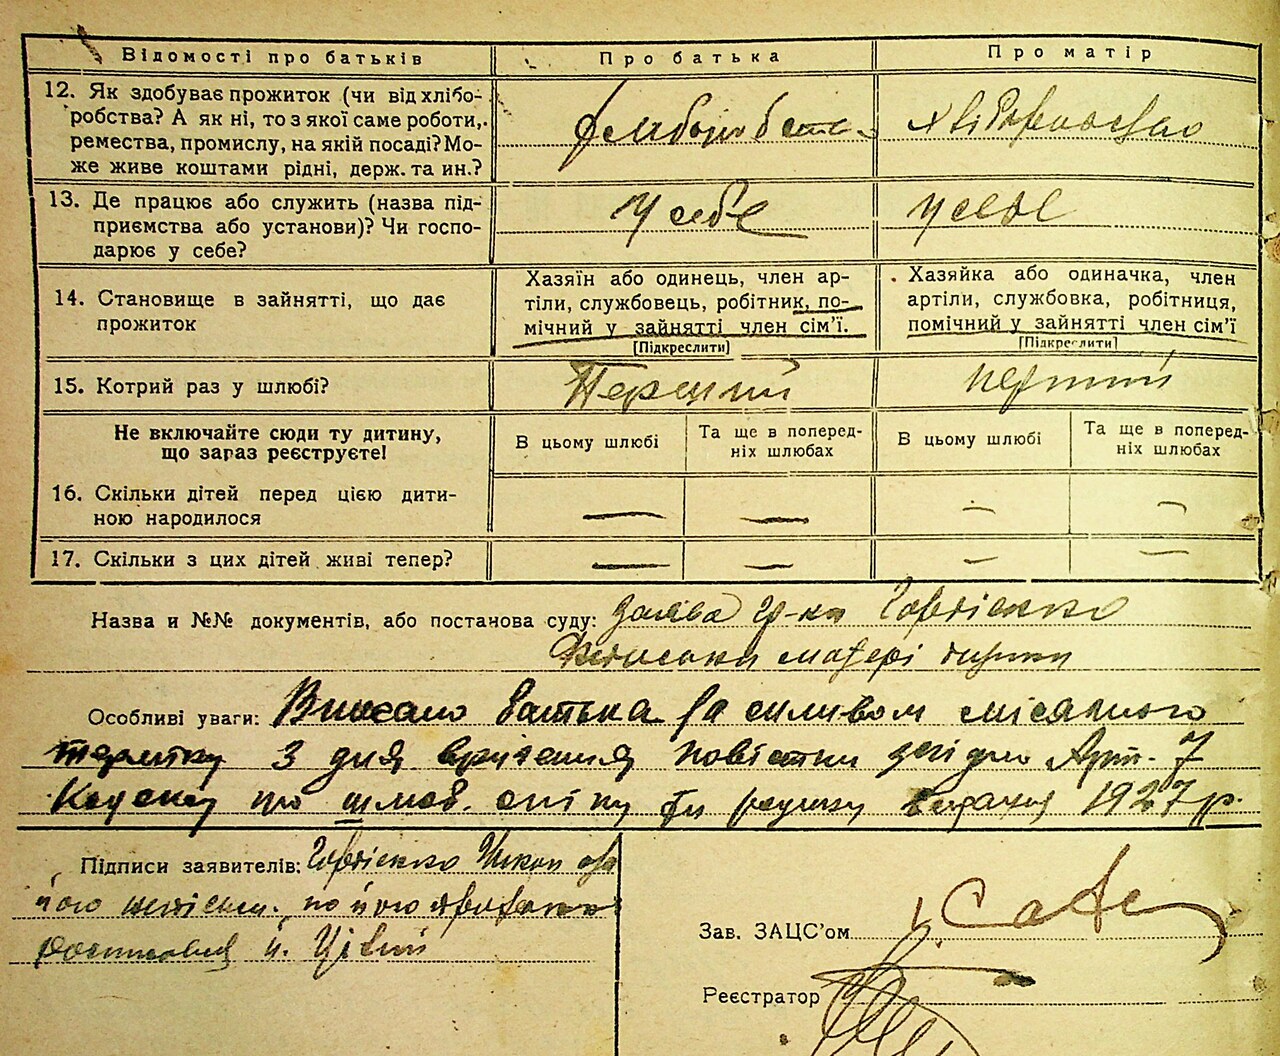 Відомості про батьків
Про батька
Про матір
12. Як здобуває прожиток (чи від хлібо-
робства? А як ні, то з якої саме роботи,
ремества, промислу, на якій посаді? Мо-
же живе коштами рідні, держ. та ин.?
хліборобство
13. Де працює або служить (назва під-
приємства або установи)? Чи госпо-
дарює у себе?
у себе
у себе
14. Становище в зайнятті, що дає
прожиток
Хазяїн або одинець, член ар-
тіли, службовець, робітник, по-
мічний у зайнятті член сім'ї.
[Підкреслити]
Хазяйка або одиначка, член
артіли, службовка, робітниця,
помічний у зайнятті член сім'ї
[Підкреслити]
15. Котрий раз у шлюбі?
Перший
перший
Не включайте сюди ту дитину,
що зараз реєструєте!
В цьому шлюбі
Та ще в поперед-
ніх шлюбах
В цьому шлюбі
Та ще в поперед-
ніх шлюбах
16. Скільки дітей перед цією дити-
ною народилося
— — — —
17. Скільки з цих дітей живі тепер?
— — — —
Назва и №№ документів, або постанова суду: заява гр-ки
матері
Особливі уваги: Вписано батька за спливом місячного
терміну з дня вручення повістки згідно Арт. 7
Кодексу про опіку 1927 р.
Підписи заявителів:
його неписьм. по його
й.
Зав. ЗАЦС'ом
Реєстратор